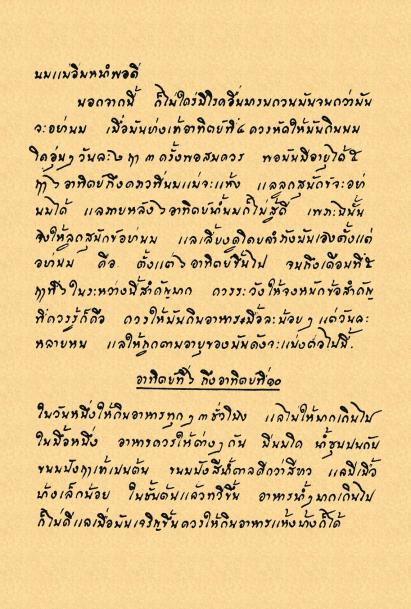 นมแม่อิ่มหนำพอดี
นอกจากนี้ ก็ไม่ใคร่มีโรคอื่นมารบกวนมันจนกว่ามัน
จะอย่านม เมื่อมันย่างเข้าอาทิตย์ที่๔ ควรหัดให้มันกินนม
โคอุ่นๆ วันละ๒ ฤๅ ๓ ครั้งพอสมควร พอมันมีอายุได้ ๕
ฤๅ๖ อาทิตย์ถึงคราวที่นมแม่จะแห้ง แลลูกสุนัขจะอย่า
นมได้ แลภายหลัง๖ อาทิตย์น้ำนมก็ไม่สู้ดี เพราะฉนั้น
จงให้ลูกสุนัขอย่านม แลเลี้ยงดูโดยลำพังมันเองตั้งแต่
อย่านม คือ ตั้งแต่๖ อาทิตย์ขึ้นไป จนถึงเดือนที่๕
ฤๅที่๖ ในระหว่างนี้สำคัญมาก ควรระวังให้จงหนักข้อสำคัญ
ที่ควรรู้ก็คือ ควรให้มันกินอาหารมื้อละน้อยๆ แต่วันละ
หลายหน แลให้ถูกตามอายุของมันดังจะแบ่งต่อไปนี้.
อาทิตย์ที่๖ ถึงอาทิตย์ที่๑๐
ในวันหนึ่งให้กินอาหารทุกๆ ๓ ชั่วโมง แลไม่ให้มากเกินไป
ในมื้อหนึ่ง อาหารควรให้ต่างๆ กัน มีนมโค น้ำซุปปนกับ
ขนมปังฤๅเข้าเปนต้น ขนมปังสีน้ำตาลดีกว่าสีขาว แลมีเนื้อ
บ้างเล็กน้อย ในชั้นต้นแล้วทวีขึ้น อาหารน้ำๆมากเกินไป
ก็ไม่ดีแลเมื่อมันเจริญขึ้นควรให้กินอาหารแห้งบ้างก็ได้